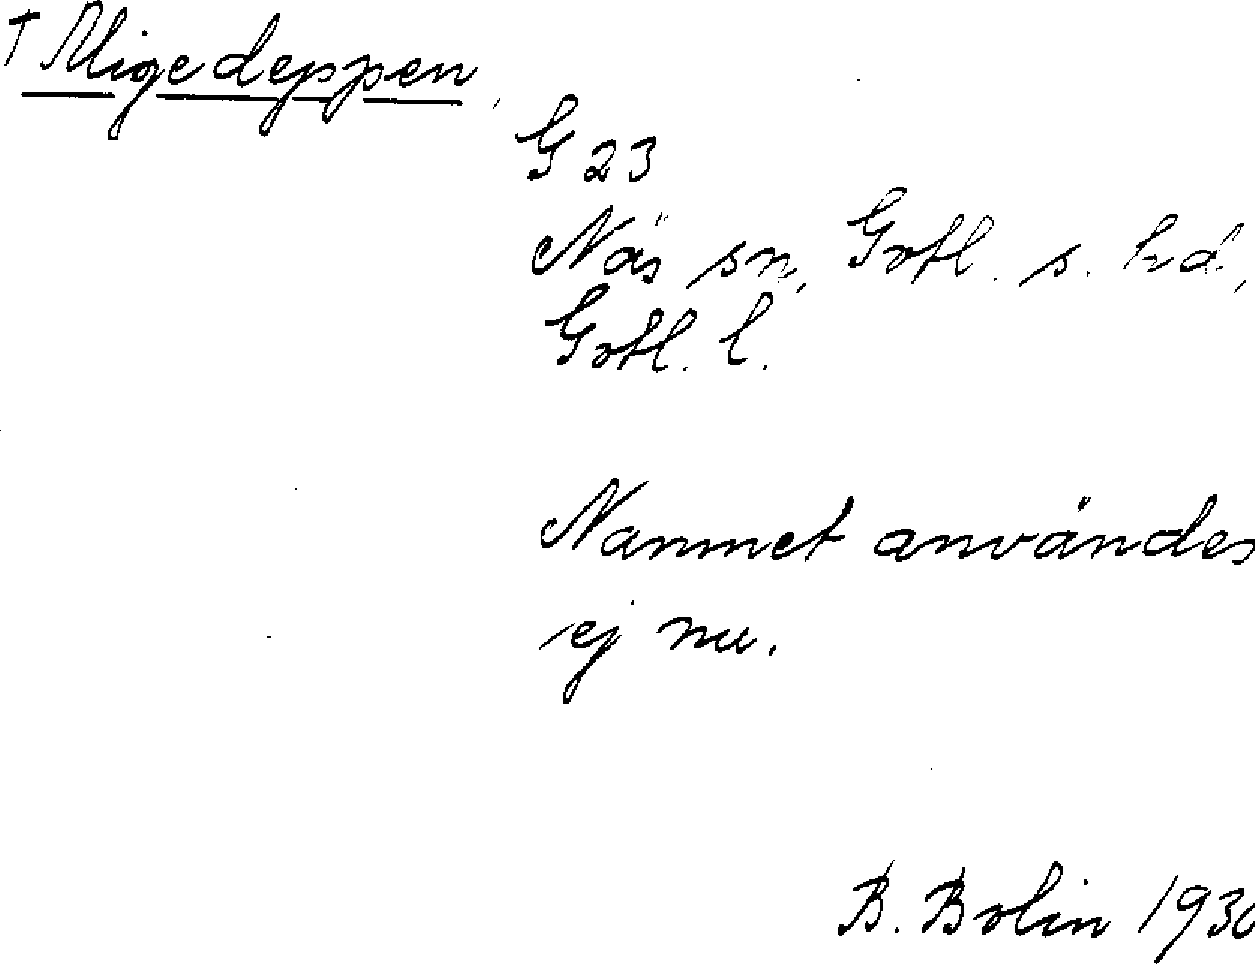 † Migedeppen
G 23
Näs sn, Gotl. s. hd.,
Gotl. l.
Namnet användes
ej nu.
B. Bolin 1930